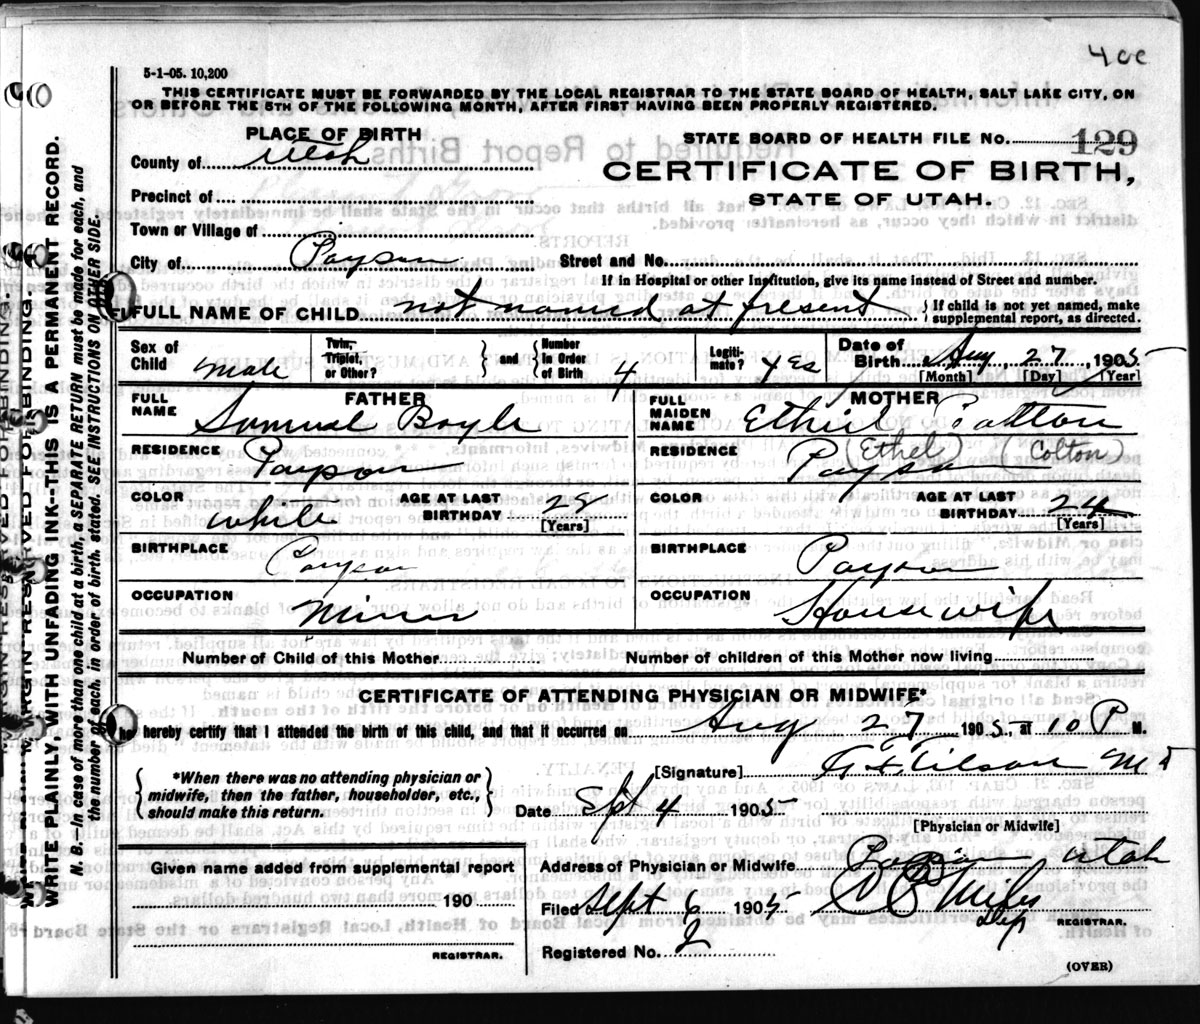 4cc
5-1-05. 10,200
THIS CERTIFICATE MUST BE FORWARDED BY THE LOCAL REGISTRAR TO THE STATE BOARD OF HEALTH, SALT LAKE CITY, ON
OR BEFORE THE 5TH OF THE FOLLOWING MONTH, AFTER FIRST HAVING BEEN PROPERLY REGISTERED.
PLACE OF BIRTH
County of Utah
Precinct of
Town or Village of
City of Payson
STATE BOARD OF HEALTH FILE No. 129
CERTIFICATE OF BIRTH,
STATE OF UTAH.
Street and No.
If in Hospital or other Institution, give its name instead of Street and number.
FULL NAME OF CHILD not named at present { If child is not yet named, make
supplemental report, as directed.
Sex of Child Male
Twin, Triplet, or Other? } and { Number In Order of Birth 4
Legiti-mate? yes
Date of Birth Aug 27 1905
[Month] [Day] [Year]
FATHER
FULL NAME Samuel Boyle
RESIDENCE Payson
COLOR White
AGE AT LAST BIRTHDAY 29
[Years]
BIRTHPLACE Payson
OCCUPATION Miner
MOTHER
FULL MAIDEN NAME Ethiel Patton
(Ethel) (Colton)
RESIDENCE Payson
COLOR
AGE AT LAST BIRTHDAY 24
[Years]
BIRTHPLACE Payson
OCCUPATION Housewife
Number of Child of this Mother
Number of children of this Mother now living
CERTIFICATE OF ATTENDING PHYSICIAN OR MIDWIFE*
I hereby certify that I attended the birth of this child, and that it occurred on Aug 27 1905, at 10 P M.
*When there was no attending physician or
midwife, then the father, householder, etc.,
should make this return.
[Signature] Tilson MD
Date Sept 4 1905
[Physician or Midwife]
Given name added from supplemental report
190
REGISTRAR.
Address of Physician or Midwife Payson, Utah
Filed Sept 6 1905
Dep REGISTRAR.
Registered No. 2
(OVER)
MARGIN RESERVED FOR BINDING.
WRITE PLAINLY, WITH UNFADING INK--THIS IS A PERMANENT RECORD.
N. B.--In case of more than one child at a birth, a SEPARATE RETURN must be made for each, and
the number of each, in order of birth, stated. SEE INSTRUCTIONS ON OTHER SIDE.